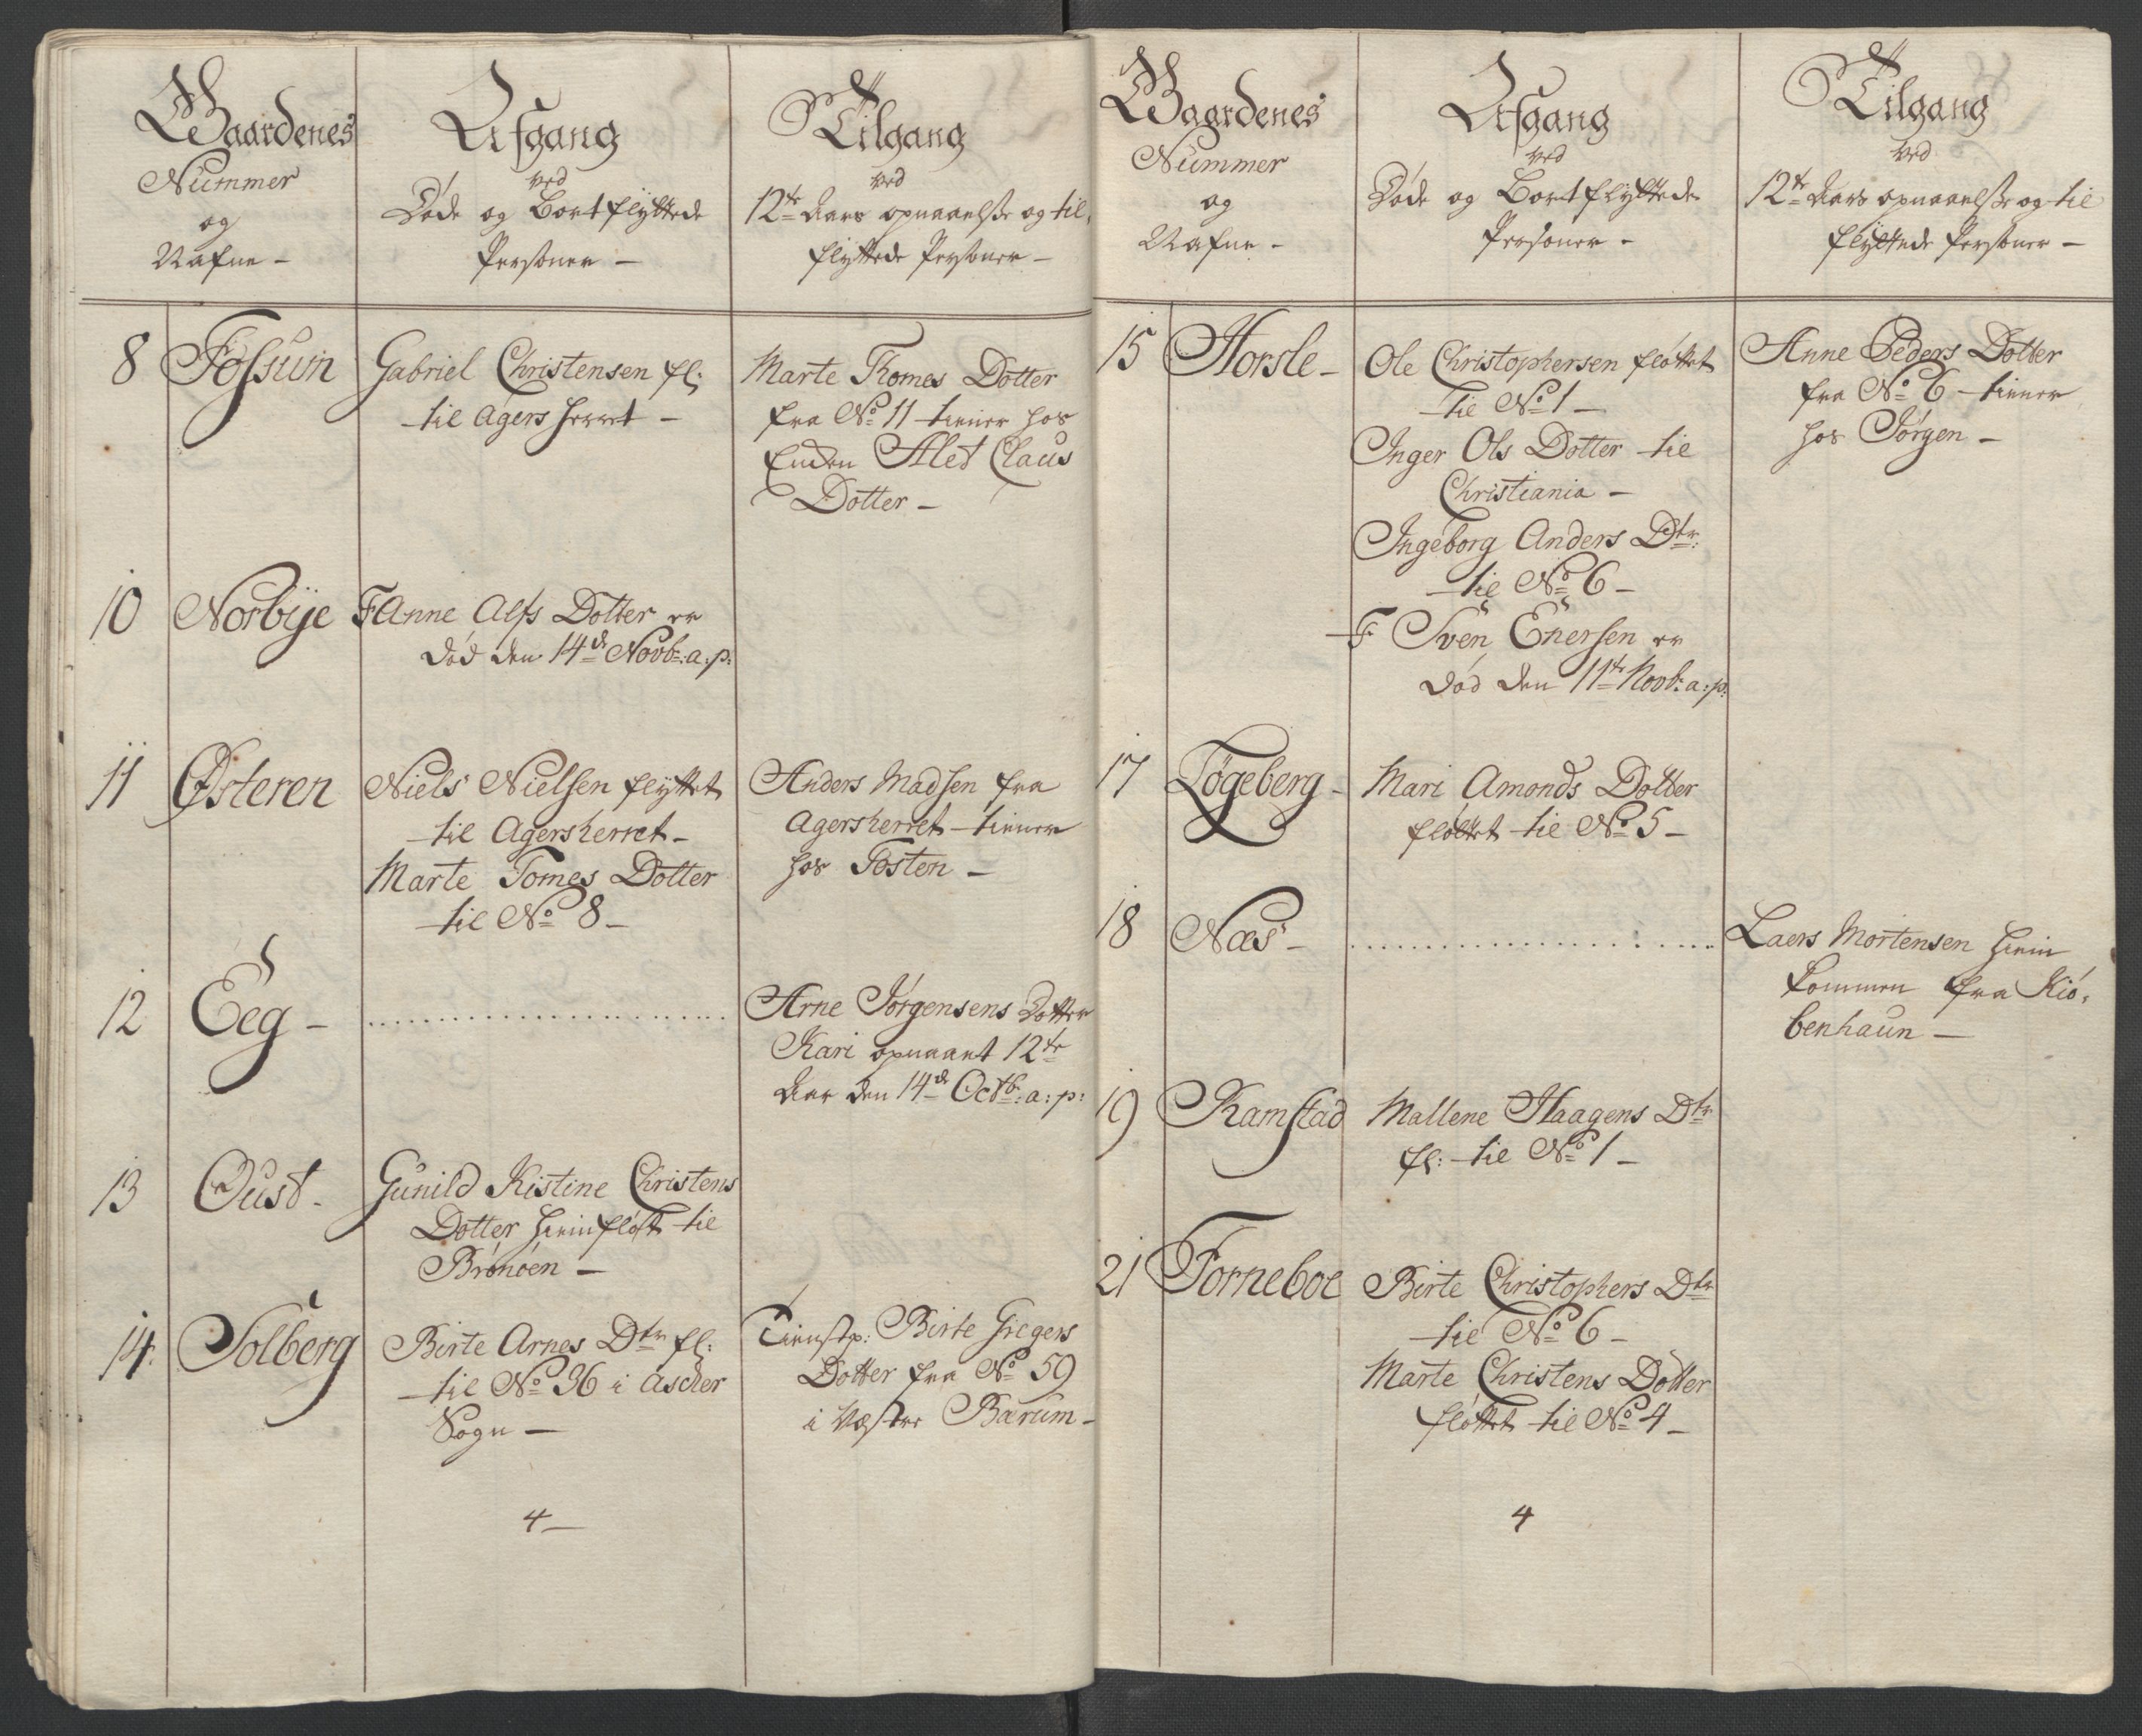 Gaardenes
Nummer
og
Nafne -
Afgang
ved
Døde og Bortflyttede
Personer -
Tilgang
ved
12te Aars opnaaelsse og til-
flyttede Personer -
8 Fossum
Gabriel Christensen fl:
til Agersherret -
Marte Thomes Dotter
fra No 11 tiener hos
Enken Alet Claus
Dotter -
10 Norbye
Anne Alfs Dotter er
død den 14de Novbr: a: p:
11 Østeren
Niels Nielsen flyttet
til Agersherret -
Marte Tomes Dotter
til No 8 -
Anders Madsen fra
Agersherret tiener
hos Tosten -
12 Eeg -
Arne Jørgensens Dotter
Kari opnaaet 12te
Aar den 14de Octbr: a: p:
13 Oust -
Gunild Kistine Christens
Dotter henfløtt til
Brönöen -
14. Solberg
Birte Arnes Dtr fl:
til No 36 i Ascher
Sogn -
Tienstp: Birte Gregers
Dotter fra No 59
i Vestre Bærum -
4 -
Gaardenes
Nummer
og
Nafne -
Afgang
ved
Døde og Bortflyttede
Personer -
Tilgang
ved
12te Aars opnaaelsse og til
flyttede Personer -
15 Horsle -
Ole Christophersen fløttet
til No 1 -
Inger Ols Dotter til
Christiania -
Ingeborg Anders Dtr:
til No 6 -
Sven Enersen er
død den 11te Novb: a: p:
Anne Peders Dotter
fra No 6 - tiener
hos Jørgen -
17 Løgeberg -
Mari Amonds Dotter
fløttet til No 5 -
18 Næs -
Laers Mortensen
kommen fra Kiö-
benhaun -
19 Ramstad
Mallene Haagens Dtr
fl: til No 1 -
21 Forneboe
Birte Christophers Dtr
til No 6 -
Marte Christens Dotter
fløttet til No 4 -
4